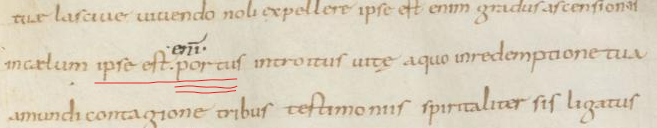 tuę lasciue uiuendo noli expellere ipse est enim gradus ascensionis
incęlum ipse est. enī. portus introitus uitę aquo inredemptione tua
amundi contagione tribus testimoniis spiritaliter sis ligatus